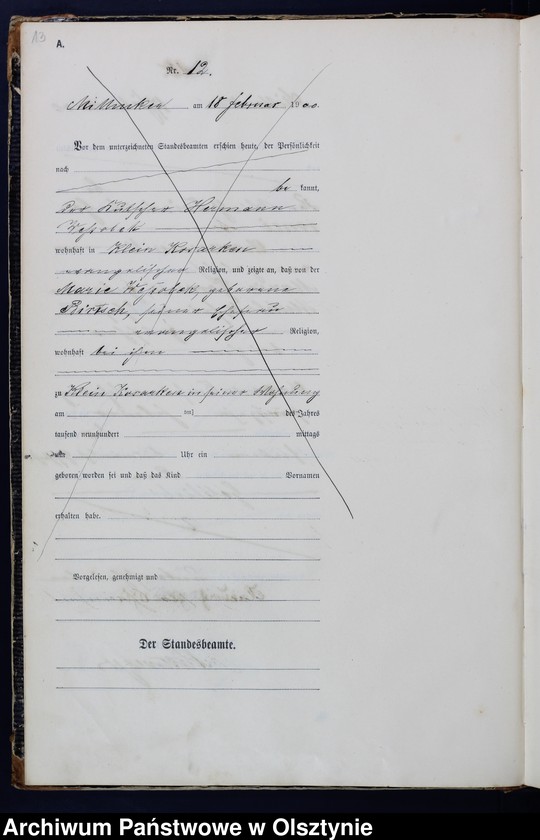 A3
A.
Nr. 12.
am 18 Februar 1900.
Vor dem unterzeichneten Standesbeamten erschien heute, der Persönlichkeit
nach
be kannt,
der Kutscher Hermann
wohnhaft in Klein Kosarken
evangelischer Religion, und zeigte an, daß von der
Marie geborene
seiner Ehefrau
evangelischer Religion,
wohnhaft bei ihm
zu Klein Kosarken in seiner Wohnung
am ten des Jahres
tausend neunhundert mittags
um Uhr ein
geboren worden sei und daß das Kind Vornamen
erhalten habe.
Vorgelesen, genehmigt und
Der Standesbeamte.
Archiwum Państwowe w Olsztynie